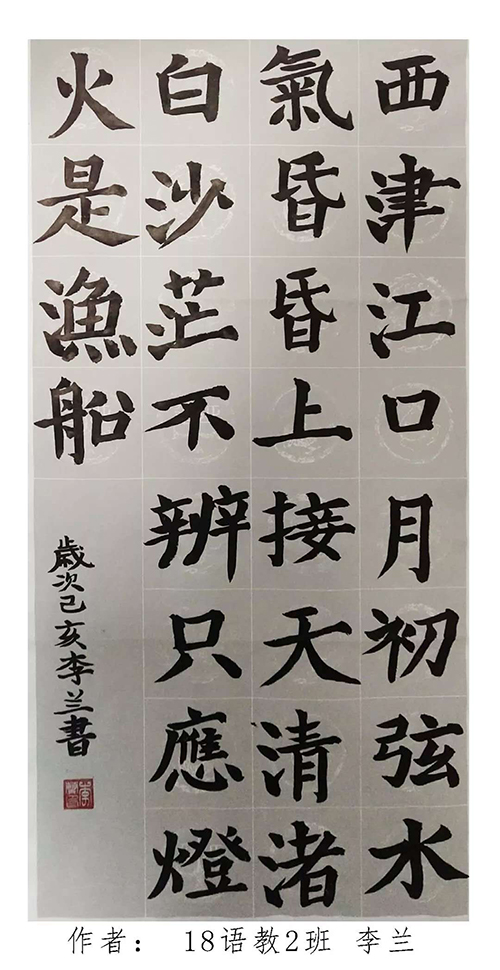 西津江口月初弦水
氣昏昏上接天清渚
白沙茫不辨只應燈
火是漁船
歲次己亥李兰書
作者： 18语教2班 李兰